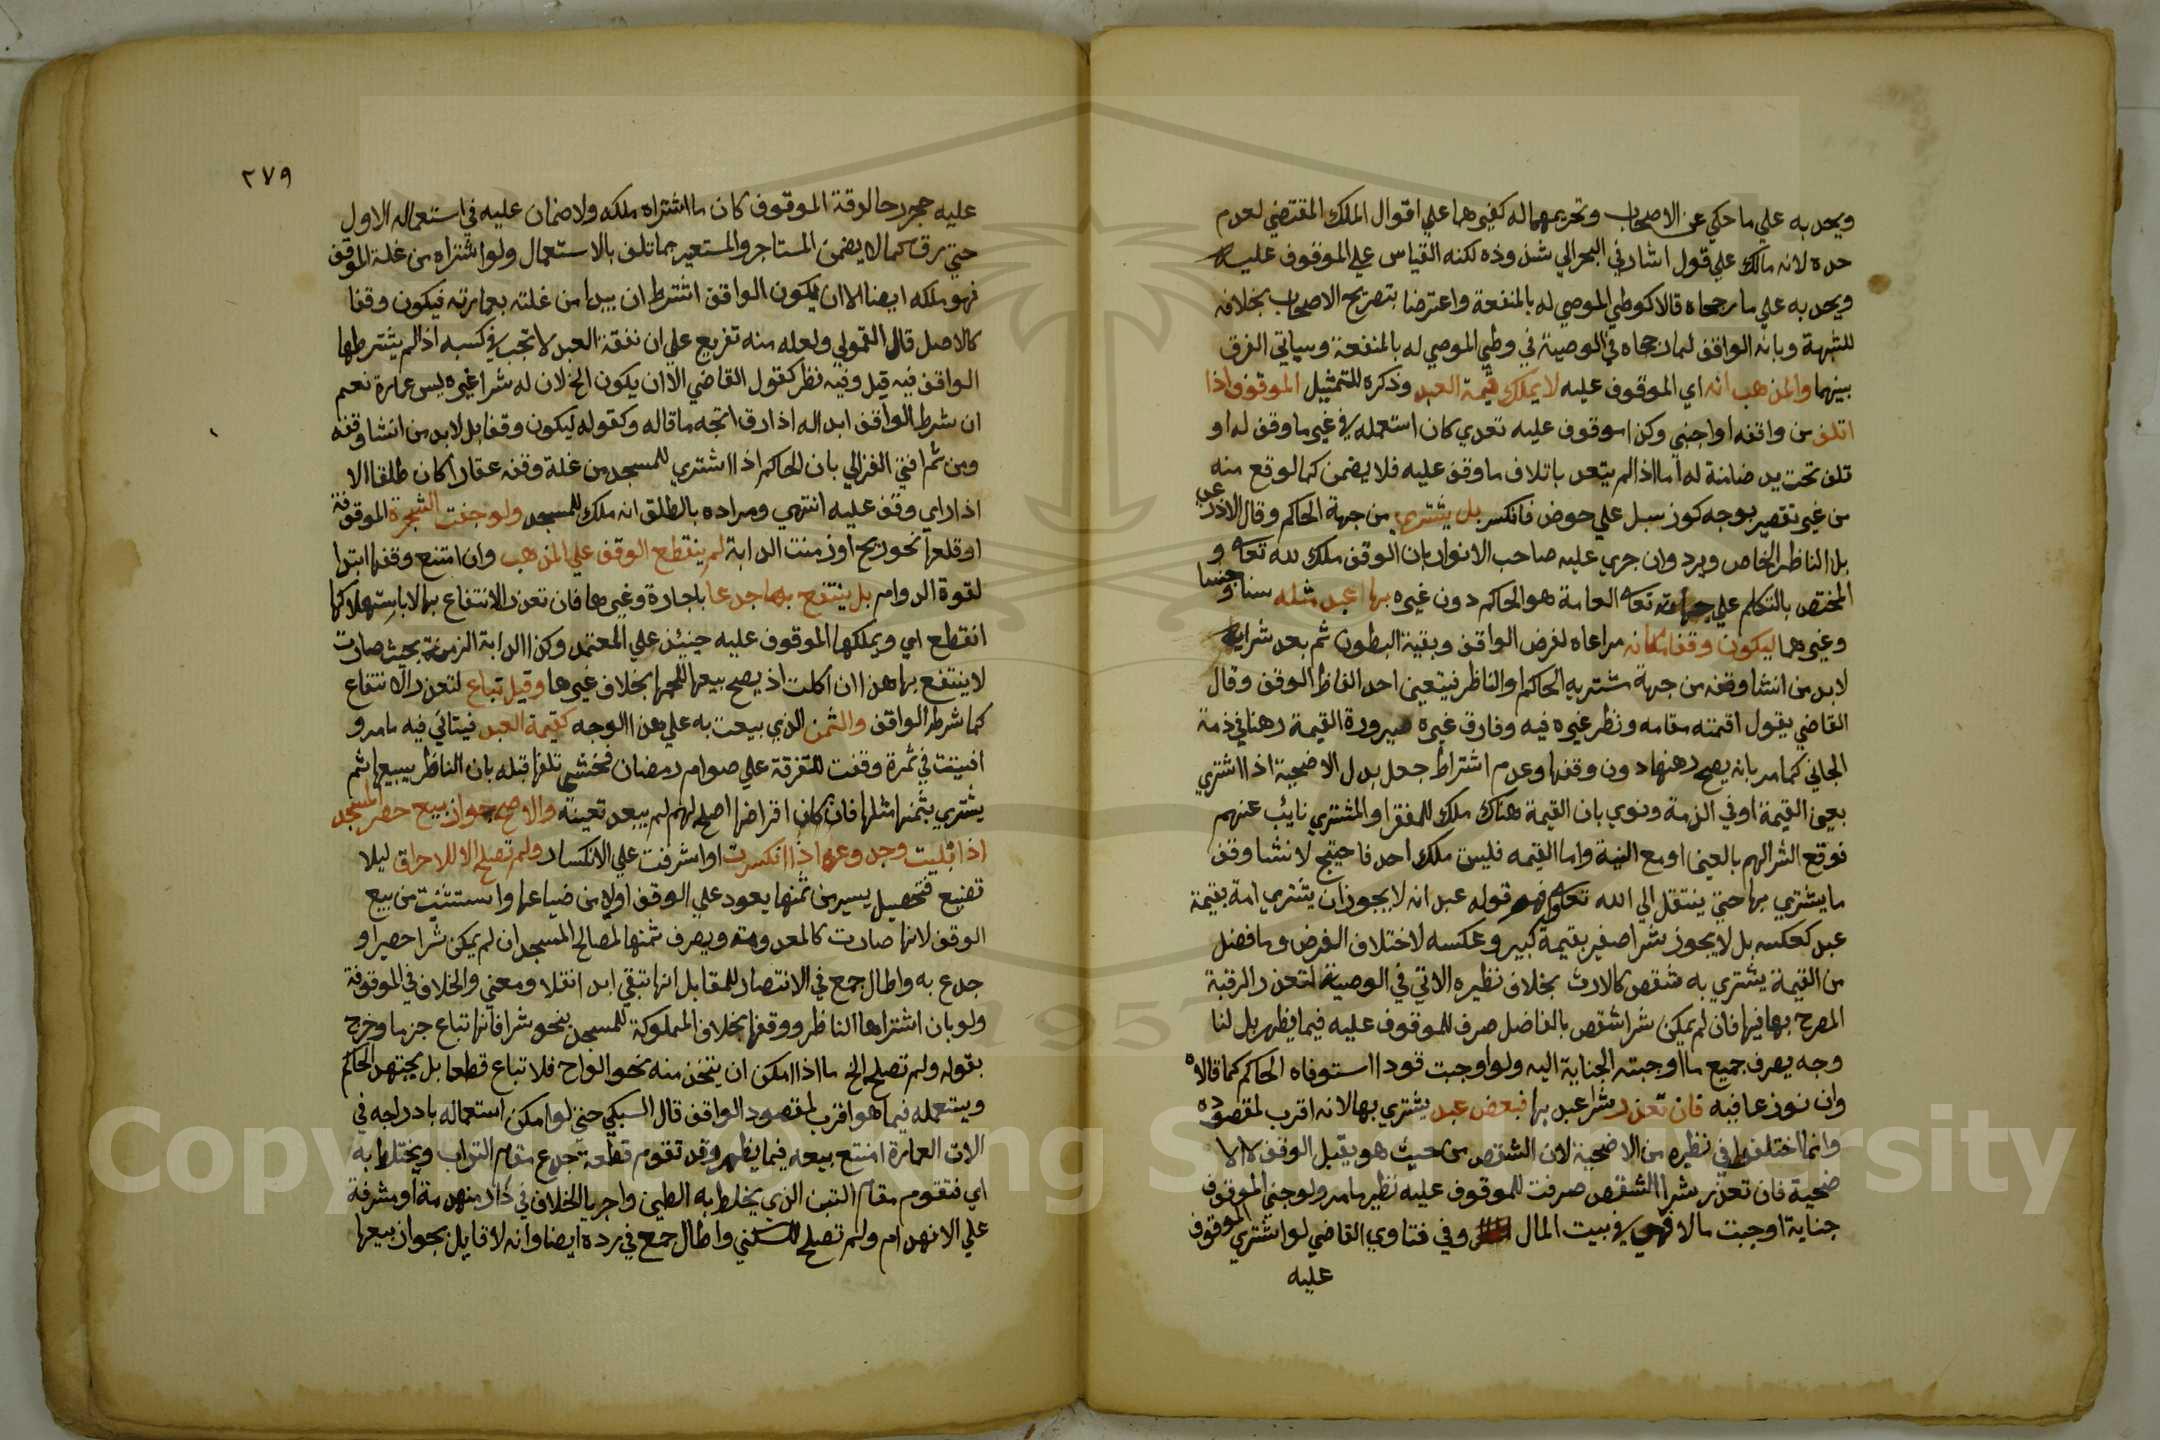 ويحد به علي ما حكي عن الاصحاب وتحريمها له كغيرهما علي اقوال الملك المقتضي لعدم
حده لانه مالك علي قول اشار في البحر الي شذوذه لكنه القياس علي الموقوف عليه
ويحد به علي ما رجحاه قالا كوطي الموصي له بالمنفعة واعترضا بتصريح الاصحاب بخلافه
للشبهة وبانه الواقف لما رجحاه في الوصية في وطي الموصي له بالمنفعة وسياتي الفرق
بينهما والمذهب انه اي الموقوف عليه لا يملك قيمة العبد وذكره للتمثيل الموقوف اذا
اتلف من واقفه او اجنبي وكذا موقوف عليه تعدي كان استعمله في غير ما وقف له او
تلف تحت يد ضامنة له اما اذا لم يتعد باتلاف ما وقف عليه فلا يضمن كما لو وقع منه
من غير تقصير بوجه كوز سبل علي حوض فانكسر بل يشتري من جهة الحاكم وقال الاذرعي
بل الناظر الخاص ويرد وان جري عليه صاحب الانوار بان الوقف ملك لله تعالى و
المختص بالتكلم علي جهاته تعالى العامة هو الحاكم دون غيره بها عبد مثله سنا وجنسا
وغيرهما ليكون وقفا مكانه مراعاه لغرض الواقف وبقية البطون ثم بعد شرايه
لا بد من انشا وقفه من جهة مشتريه الحاكم او الناظر فيتعين احد الفاظ الوقف وقال
القاضي يقول اقمته مقامه ونظر غيره فيه وفارق غيره صيرورة القيمة رهنا في ذمة
الجاني كما مر بانه يصح رهنها دون وقفها وعدم اشتراط جعل بدل الاضحية اذا اشتري
بعين القيمة او في الذمة ونوي بان القيمة هناك ملك للفقرا والمشتري نايب عنهم
فوقع الشرا لهم بالعين او مع النية واما القيمه فليست ملك احد فاحتيج لانشا وقف
ما يشتري بها حتي ينتقل الي الله تعالى وفهم قوله عبد انه لا يجوز ان يشتري امة بقيمة
عبد كعكسه بل لا يجوز شرا صغير بقيمة كبير وعكسه لاختلاف الغرض وما فضل
من القيمة يشتري به شقص كالارث بخلاف نظيره الاتي في الوصية لتعذر الرقبة
المصرح بها فيها فان لم يمكن شرا شقص بالفاضل صرف للموقوف عليه فيما يظهر بل لنا
وجه يصرف جميع ما اوجبته الجناية اليه ولو اوجبت قودا استوفاه الحاكم كما قالاه
وان نوزعا فيه فان تعذر شرا عبد بها فبعض عبد يشتري بها لانه اقرب لمقصوده
وانما اختلفوا في نظيره من الاضحية لان الشقص من حيث هو يقبل الوقف لا الا
ضحية فان تعذر شرا الشقص صرفت للموقوف عليه نظير ما مر ولو جني الموقوف
جناية اوجبت مالا فهي في بيت المال وفي فتاوي القاضي لو اشتري الموقوف
عليه
٢٧٩
عليه حجر رحا لوقة الموقوف كان ما اشتراه ملكه ولا ضمان عليه في استعماله الاول
حتي رق كما لا يضمن المستاجر والمستعير ما تلف بالاستعمال ولو اشتراه من غلة الموقف
فهو ملكه ايضا الا ان يكون الواقف اشترط ان يبدا من غلته بعمارته فيكون وقفا
كالاصل قال القمولي ولعله منه تفريع علي ان نفقة العبد لا تجب في كسبه اذا لم يشترطها
الواقف فيه قيل وفيه نظر كقول القاضي الا ان يكون الخ لان له شرا غيره ليس عمارة نعم
ان شرط الواقف ابداله اذا رق اتجه ما قاله وكقوله ليكون وقفا بل لا بد من انشا وقفه
ومن ثم افتي الغزالي بان الحاكم اذا اشتري للمسجد من غلة وقفه عقارا كان طلقا الا
اذا راي وقف عليه انتهي ومراده بالطلق انه ملك للمسجد ولو جفت الشجرة الموقوفة
او قلعها نحو ريح او زمنت الدابة لم ينقطع الوقف علي المذهب وان امتنع وقفها ابتدا
لقوة الدوام بل ينتفع بها جذعا باجارة وغيرها فان تعذر الانتفاع بها الا باستهلاكها
انقطع اي ويملكها الموقوف عليه حينئذ علي المعتمد وكذا الدابة الزمنة بحيث صارت
لا ينتفع بها هذا ان اكلت اذ يصح بيعها للحمها بخلاف غيرها وقيل تباع لتعذر الانتفاع
كما شرط الواقف والثمن الذي بيعت به علي هذا الوجه كقيمة العبد فيتاتي فيه ما مر و
افتيت في ثمرة وقفت للتفرقة علي صوام رمضان فخشي تلفها قبله بان الناظر يبيعها ثم
يشتري بثمنها مثلها فان كان اقراضها اصلح لهم لم يبعد تعينه والاصح جواز بيع حصر المسجد
اذا بليت وجذوعه اذا انكسرت او اشرفت علي الانكسار ولم تصلح الا للاحراق ليلا
تضيع فتحصيل يسير من ثمنها يعود علي الوقف اولي من ضياعها واستثنيت من بيع
الوقف لانها صارت كالمعدومة ويصرف ثمنها لمصالح المسجد ان لم يمكن شرا حصير او
جذع به واطال جمع في الانتصار للمقابل انها تبقي ابدا نقلا ومعني والخلاف في الموقوفة
ولو بان اشتراها الناظر ووقفها بخلاف المملوكة للمسجد بنحو شرا فانها تباع جزما وخرج
بقوله ولم تصلح الخ ما اذا امكن ان يتخذ منه نحو الواح فلا تباع قطعا بل يجتهد الحاكم
ويستعمله فيما هو اقرب لمقصود الواقف قال السبكي حتي لو امكن استعماله بادراجه في
الات العمارة امتنع بيعه فيما يظهر وقد تقوم قطعة جذع مقام التراب ويختلط به
اي فتقوم مقام التبن الذي يخلط به الطين واجريا الخلاف في دار منهدمة او مشرفة
علي الانهدام ولم تصلح للسكني واطال جمع في رده ايضا وانه لا قايل بجواز بيعها
Copyright © King Saud University
1957